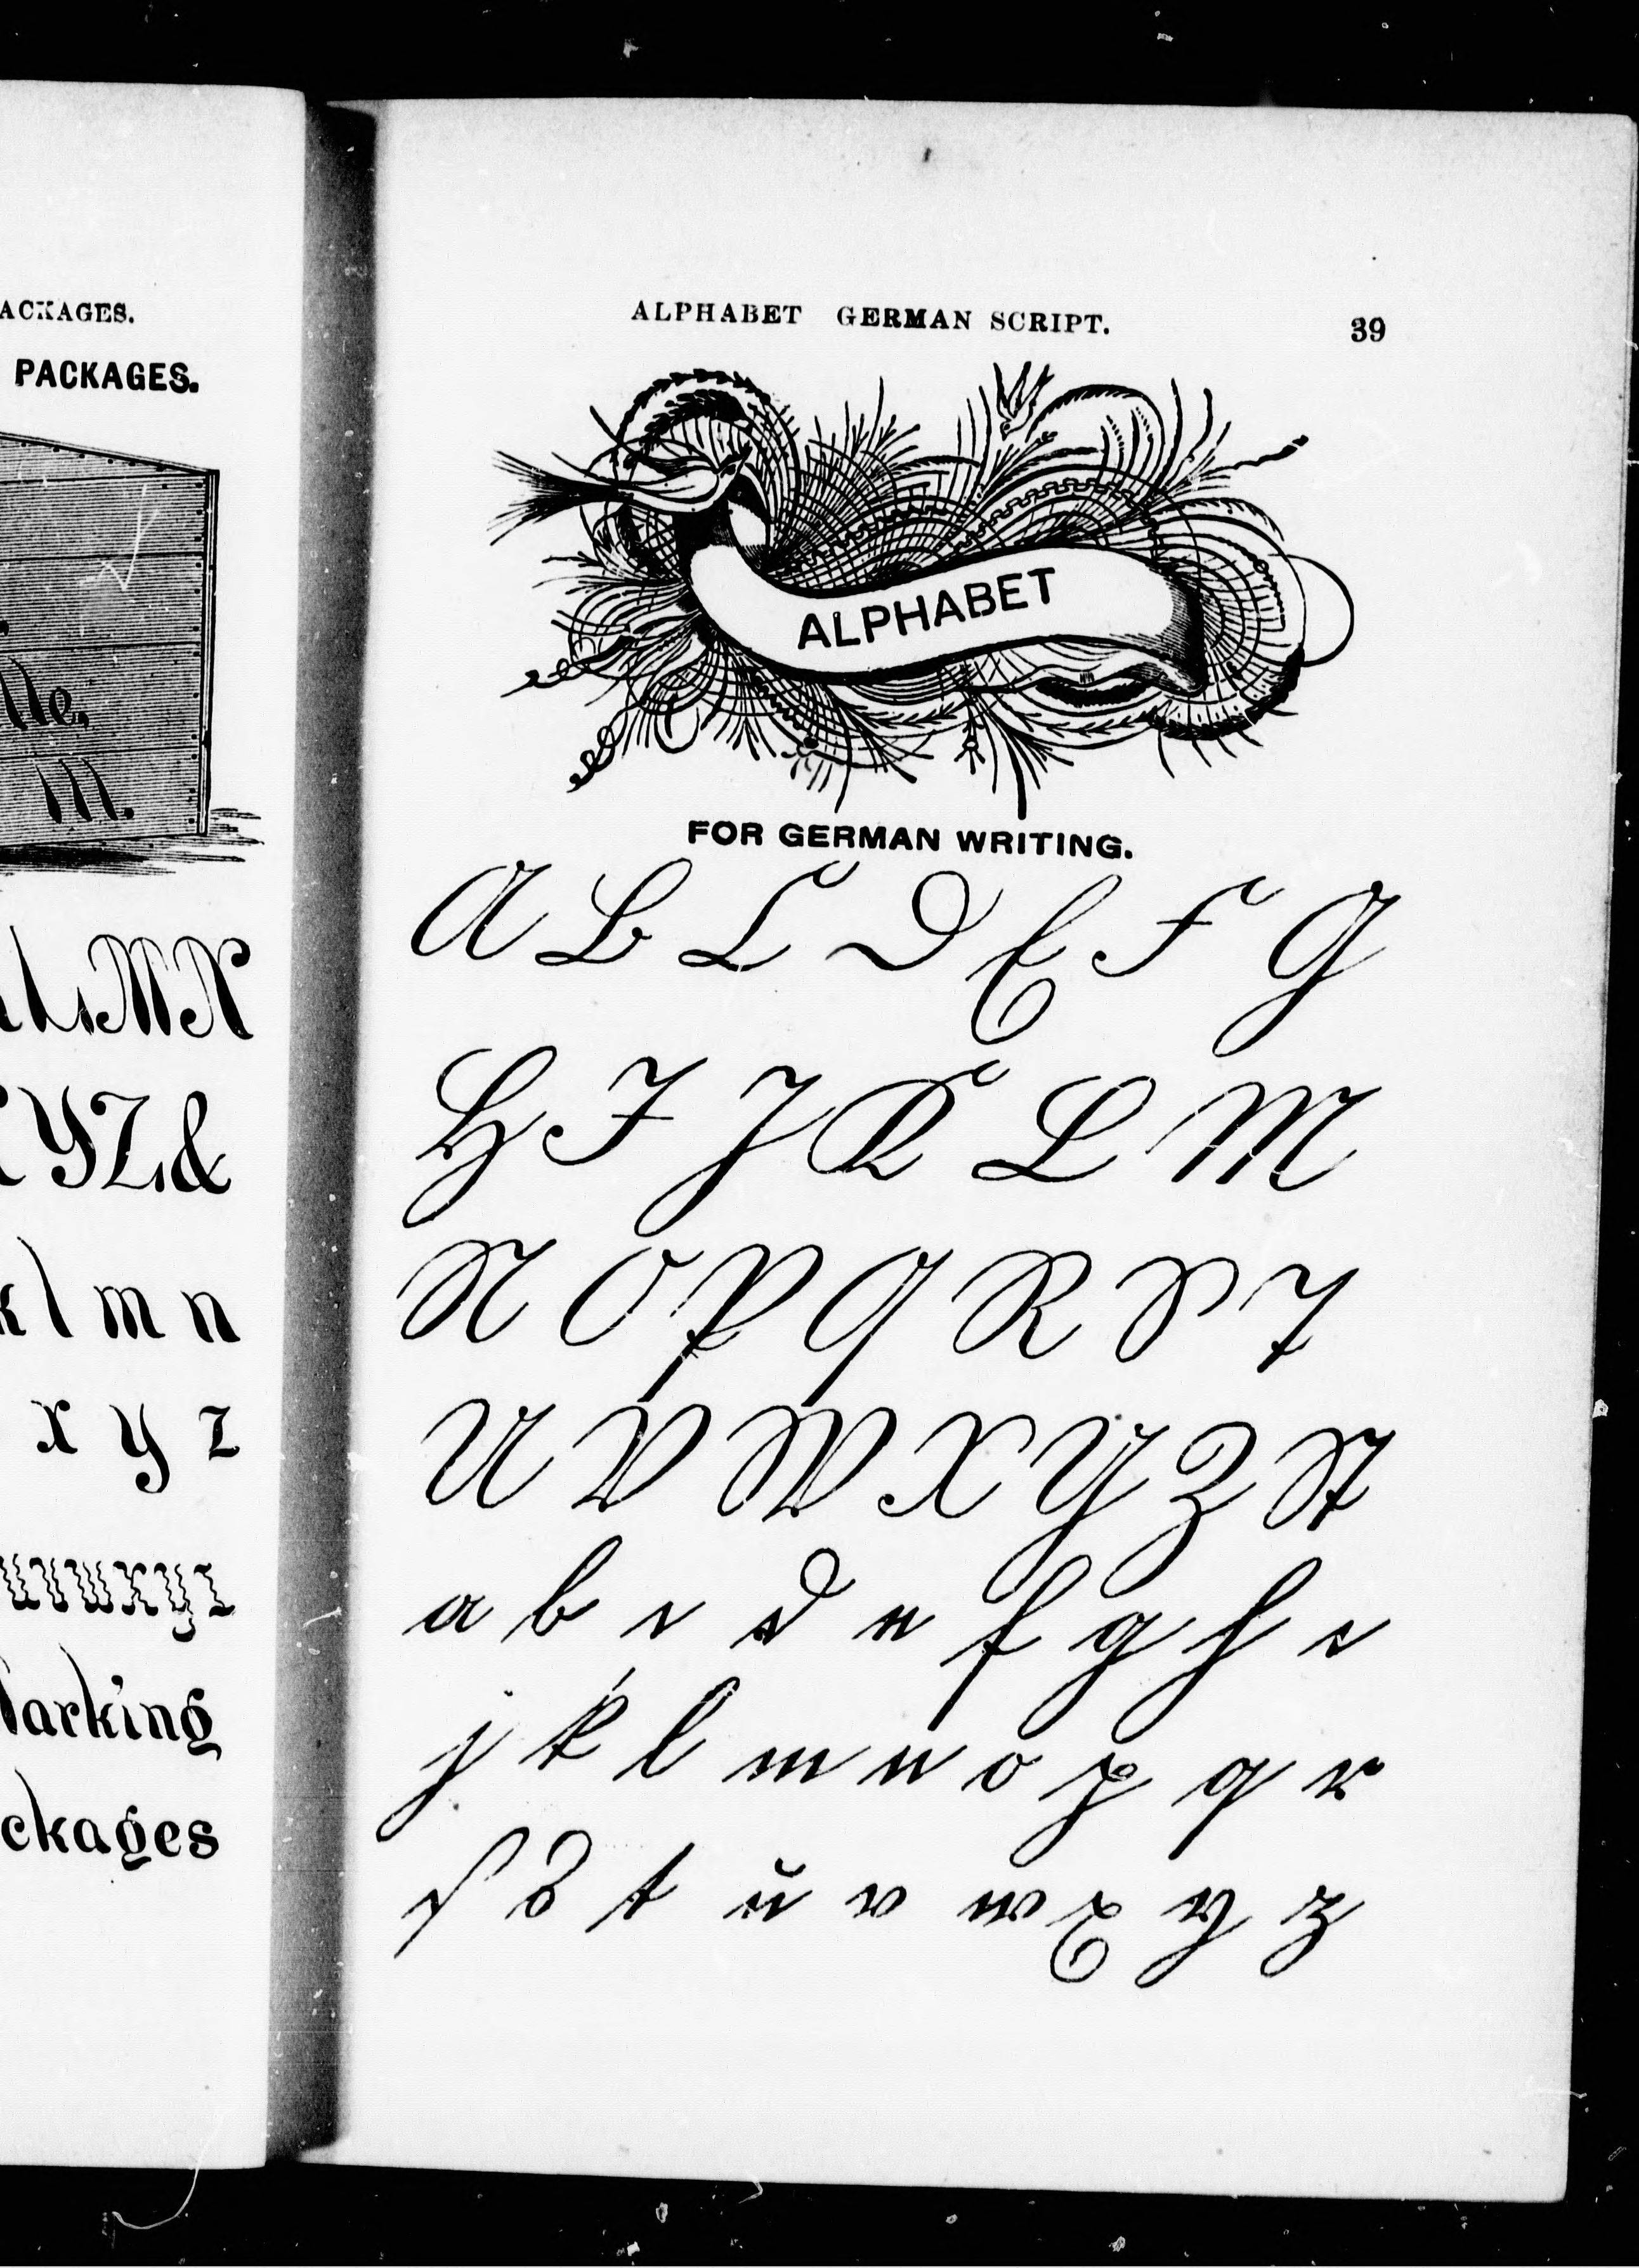 ACKAGES.
PACKAGES.
lle,
Ill.
LMN
YZ&
k l m n
x y z
uvwxyz
arking
ckages
ALPHABET GERMAN SCRIPT. 39
ALPHABET
FOR GERMAN WRITING.
A B C D E F G
H I J K L M
N O P Q R S T
U V W X Y Z
a b c d e f g h i
j k l m n o p q r
ſ s t u v w x y z